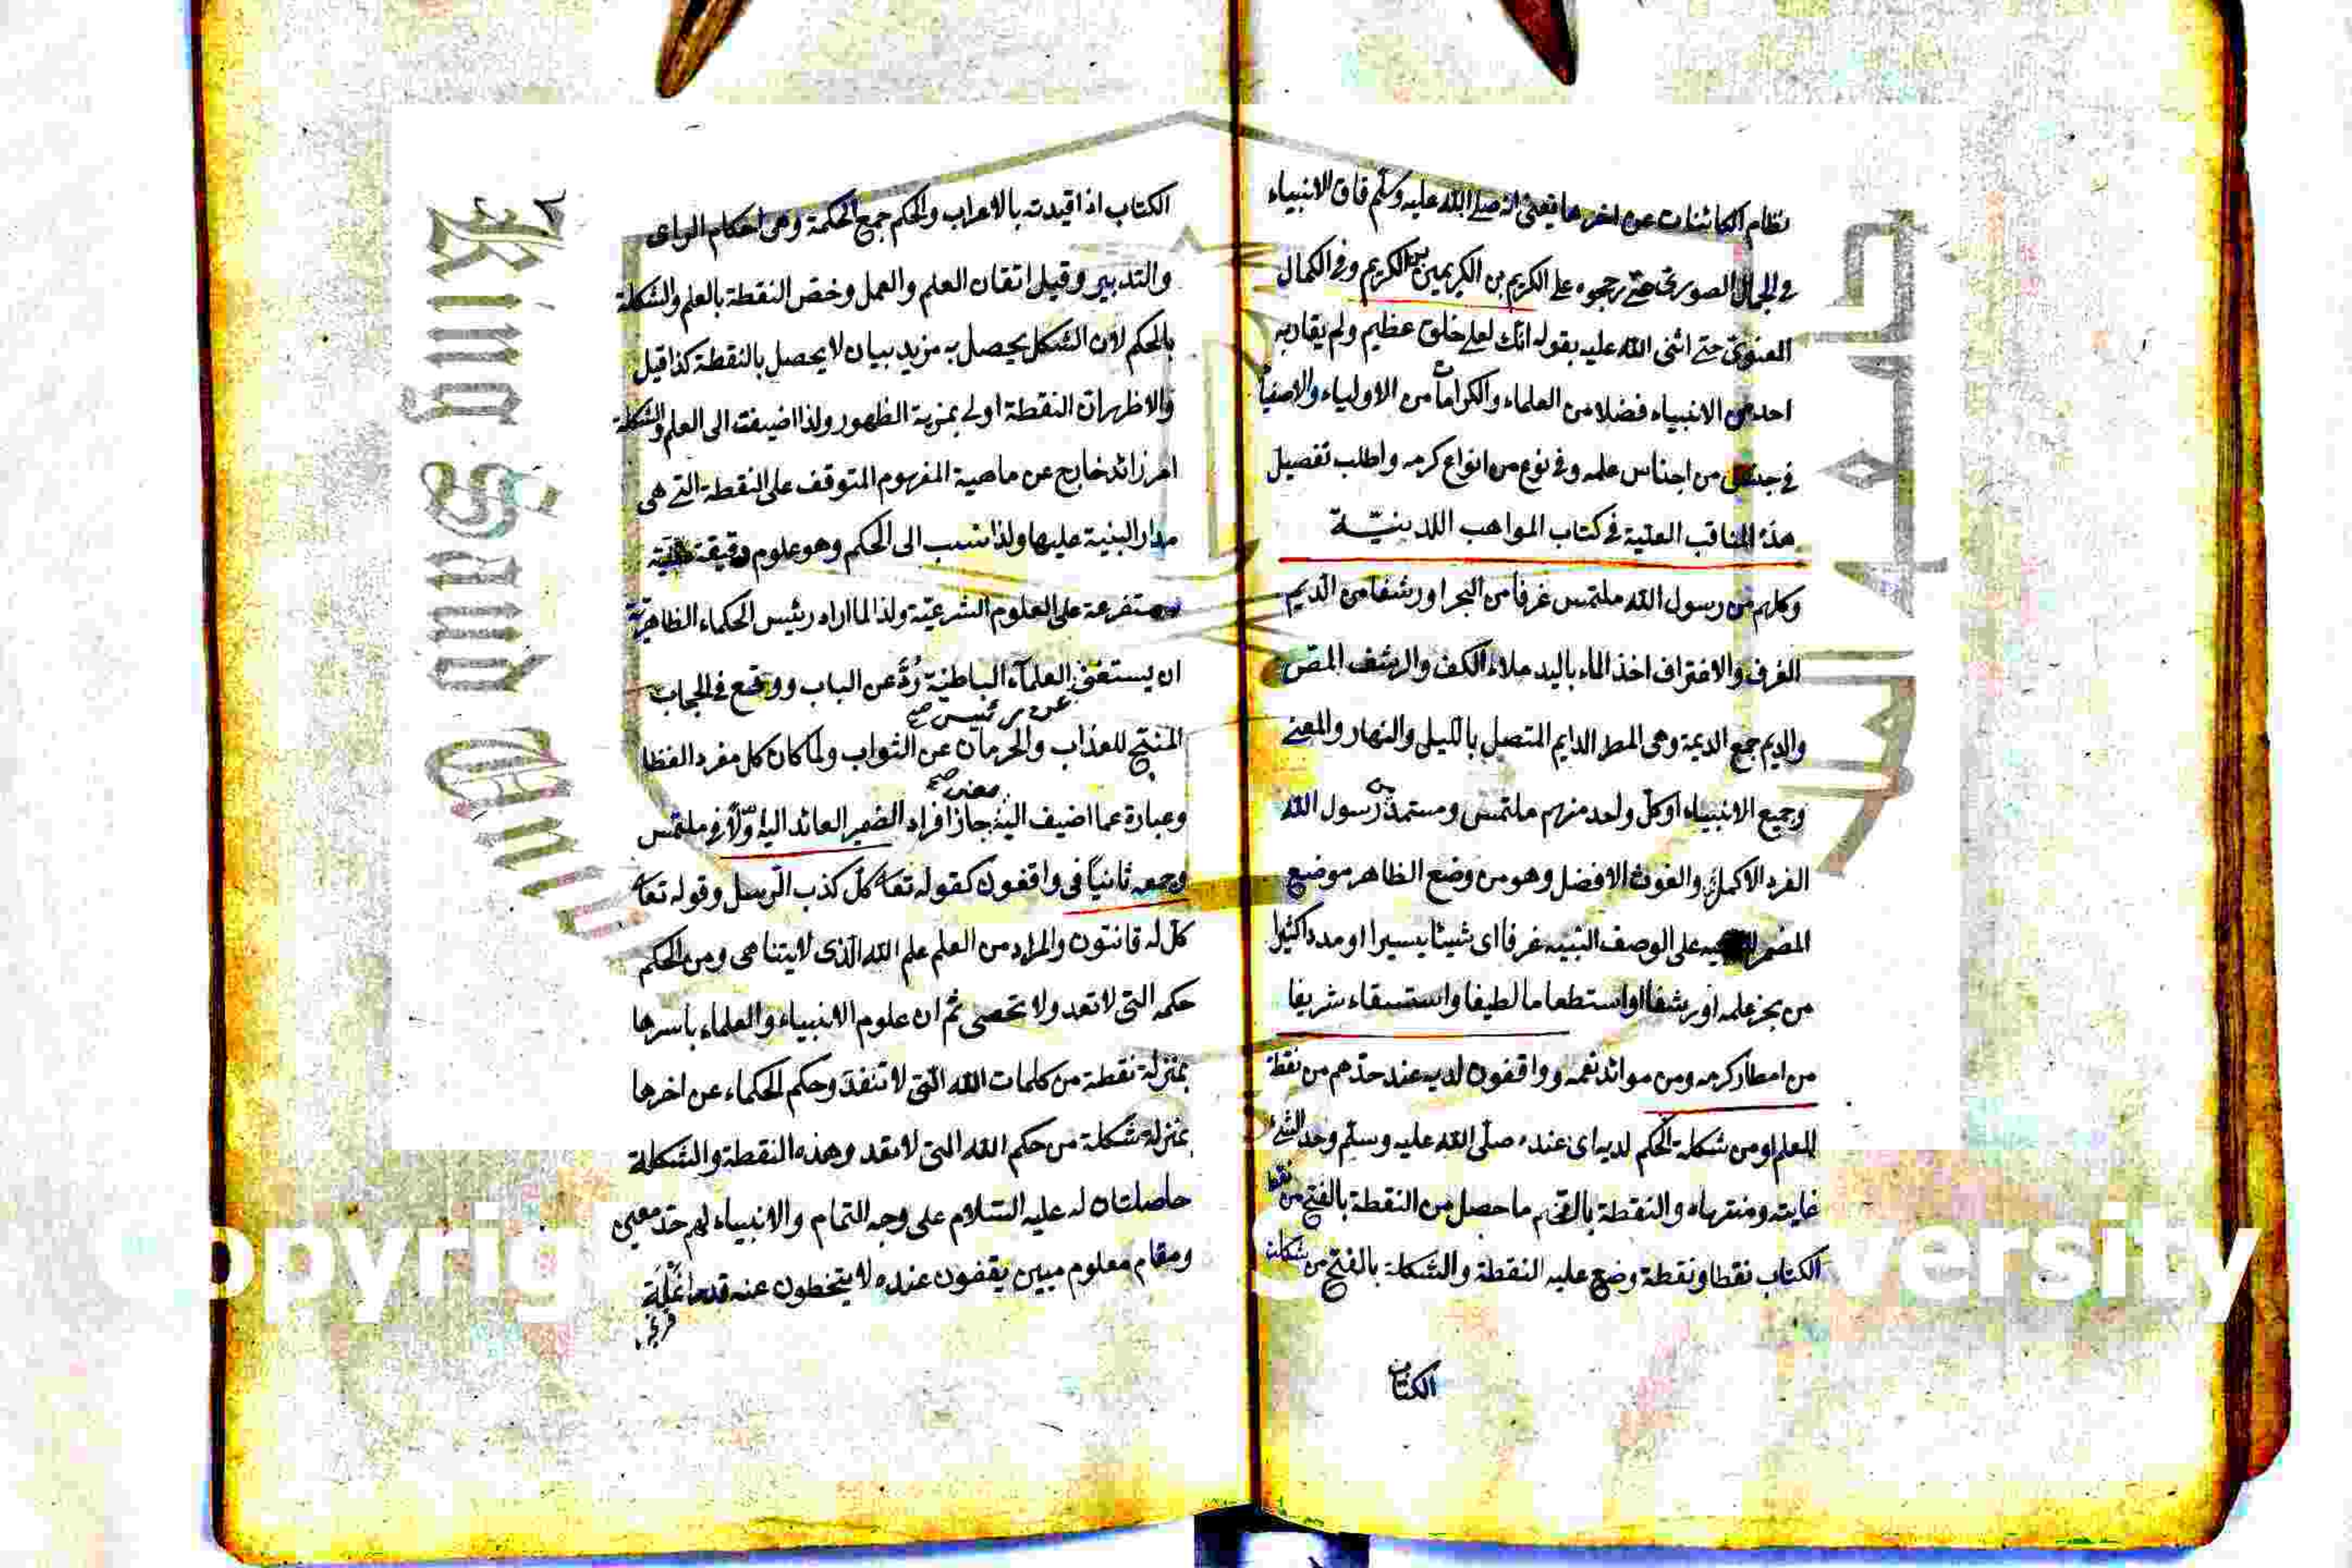 نظام الكائنات عن اخرها فيعنى انه صلى الله عليه وسلم فاق الانبياء
في الجمال الصورى حتى رجحوه على الكريم بن الكريمين بن الكريم وفي الكمال
المعنوى حتى اثنى الله عليه بقوله انك لعلى خلق عظيم ولم يقاربه
احد من الانبياء فضلا من العلماء والكرامات من الاولياء والاصفيا
في جنس من اجناس علمه وفي نوع من انواع كرمه واطلب تفصيل
هذه المناقب العلية في كتاب المواهب اللدينيّة
وكلهم من رسول الله ملتمس غرفا من البحر او رشفا من الديم
الغرف والاغتراف اخذ الماء باليد ملاء الكف والرشف المصّ
والديم جمع الديمة وهى المطر الدايم المتصل بالليل والنهار والمعنى
وجميع الانبياء او كل واحد منهم ملتمس ومستمد من رسول الله
الفرد الاكمل والغوث الافضل وهو من وضع الظاهر موضع
المضمر على الوصف النبيه غرفا اى شيئا يسيرا او مددا كثيرا
من بحر علمه او رشفا او استطعاما لطيفا واستسقاء شريفا
من امطار كرمه ومن موائد نعمه وواقفون لديه عند حدّهم من نقطة
العلم او من شكلة الحكم لديه اى عنده صلّى الله عليه وسلّم وحد الشئ
غايته ومنتهاه والنقطة بالضم ما حصل من النقطة بالفتح من نقط
الكتاب نقطا ونقطة وضع عليه النقطة والشكلة بالفتح من شكلت
الكتاب
الكتاب اذا قيدته بالاعراب والحكم جمع الحكمة وهى احكام الراى
والتدبير وقيل اتقان العلم والعمل وخصّ النقطة بالعلم والشكلة
بالحكم لان الشكل يحصل به مزيد بيان لا يحصل بالنقطة كذا قيل
والاظهر ان النقطة اولى بمزية الظهور ولذا اضيفت الى العلم والشكلة
امر زائد خارج عن ماهية المفهوم المتوقف على النقطة التى هى
مدار البنية عليها ولذا نسب الى الحكم وهو علوم دقيقة
متفرعة على العلوم الشرعيّة ولذا لما اراد رئيس الحكماء الظاهريّة
ان يستغنى العلمآء الباطنيّة ردّ عن الباب ووقع في الحجاب
عن رئيس صح
المنتج للعذاب والحرمان عن الثواب ولما كان كل مفرد الفظا
معنى صح
وعبارة عما اضيف اليه جاز افراد الضمير العائد اليه اوّلا في ملتمس
وجمعه ثانيا في واقفون كقوله تعا كلّ كذب الرّسل وقوله تعا
كل له قانتون والمراد من العلم علم الله الذى لا يتناهى ومن الحكم
حكمه التى لا تعد ولا تحصى ثم ان علوم الانبياء والعلماء باسرها
بمنزلة نقطة من كلمات الله التى لا تنفد وحكم الحكماء عن اخرها
بمنزلة شكلة من حكم الله التى لا تعد وهذه النقطة والشكلة
حاصلتان له عليه السّلام على وجه التمام والانبياء لهم حدّ معين
ومقام معلوم مبين يقفون عنده لا يتخطون عنه قدر انملة
King Saud Univ
opyrig
versity